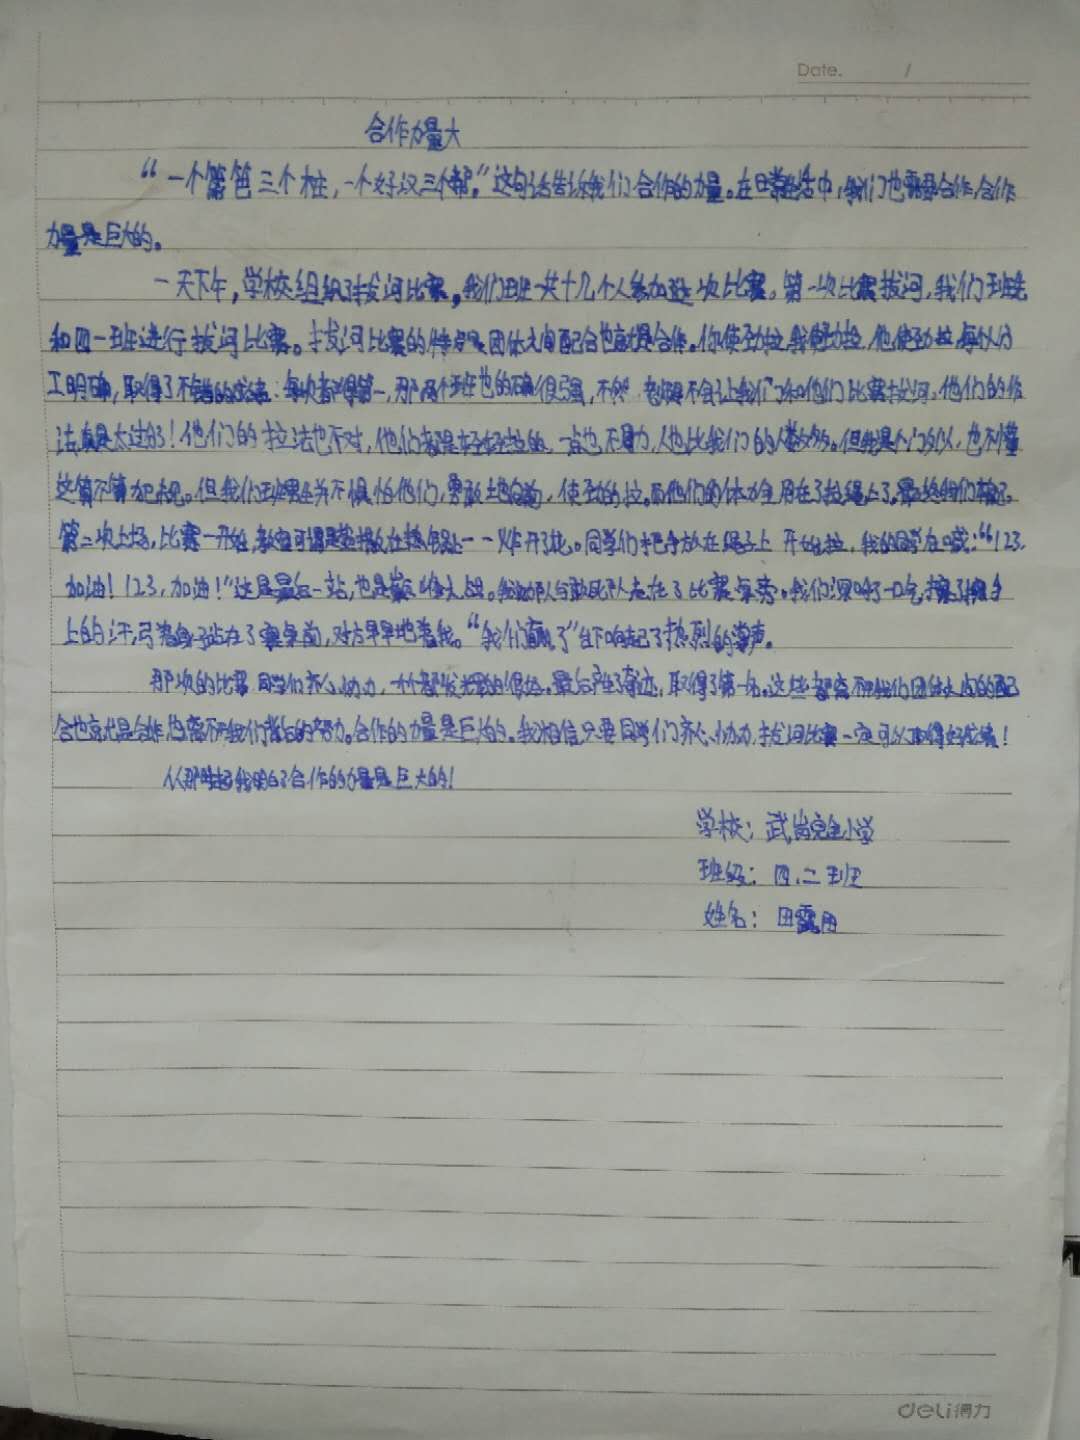 Date. /
合作力量大
“一个篱笆三个桩，一个好汉三个帮。”这句话告诉我们合作的力量。在日常生活中，我们也需要合作，合作
力量是巨大的。
一天下午，学校组织了拔河比赛，我们班一共十几个人参加这次比赛。第一次比赛拔河，我们班先
和四一班进行拔河比赛。拔河比赛的特点是团体之间配合也就是合作。你使劲拉，我使劲拉，他使劲拉，每个人分
工明确，取得了不错的成绩：每次都得第一，那两个班也的确很强，不然 老师不会让我们和他们比赛拔河，他们的做
法真是太过分！他们的拉法也不对，他们都是轻轻拉的，一点也不用力，人也比我们的人数多。但我是个门外汉，也不懂
这算不算犯规。但我们班并不惧怕他们，勇敢地向前，使劲的拉。而他们的体力全用在了拉绳上了。最终我们
第二次上场，比赛一开始，炸开了花。同学们把手放在绳子上 开始拉，我的同学在喊：“123，
加油！123，加油！”这是最后一站，也是大战。我们队与敢死队走在了比赛桌旁。我们深呼了一口气，擦了擦手
上的白汗，弓着身子站在了前，对方早早地等我。“我们赢了”台下响起了热烈的掌声。
那次的比赛 同学们齐心协力，个个都发挥的很好。最后产生了奇迹，取得了第一名。这些都离不开我们团体之间的配
合也就是合作，也离不开我们背后的努力。合作的力量是巨大的。我相信只要同学们齐心协力，拔河比赛一定可以取得好成绩！
从那时起我明白了合作的力量是巨大的！
学校：武岩完全小学
班级：四.二班
姓名：田雨
deli得力